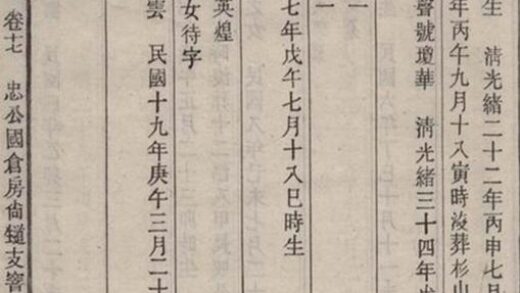 生 清光緒二十二年丙申七月
年丙午九月十八寅時歿葬杉山
聲號瓊華 清光緒三十四年
一
一
七年戊午七月十八巳時生
英煌
女待字
雲 民國十九年庚午三月二十
卷七 忠公國倉房尙鐩支